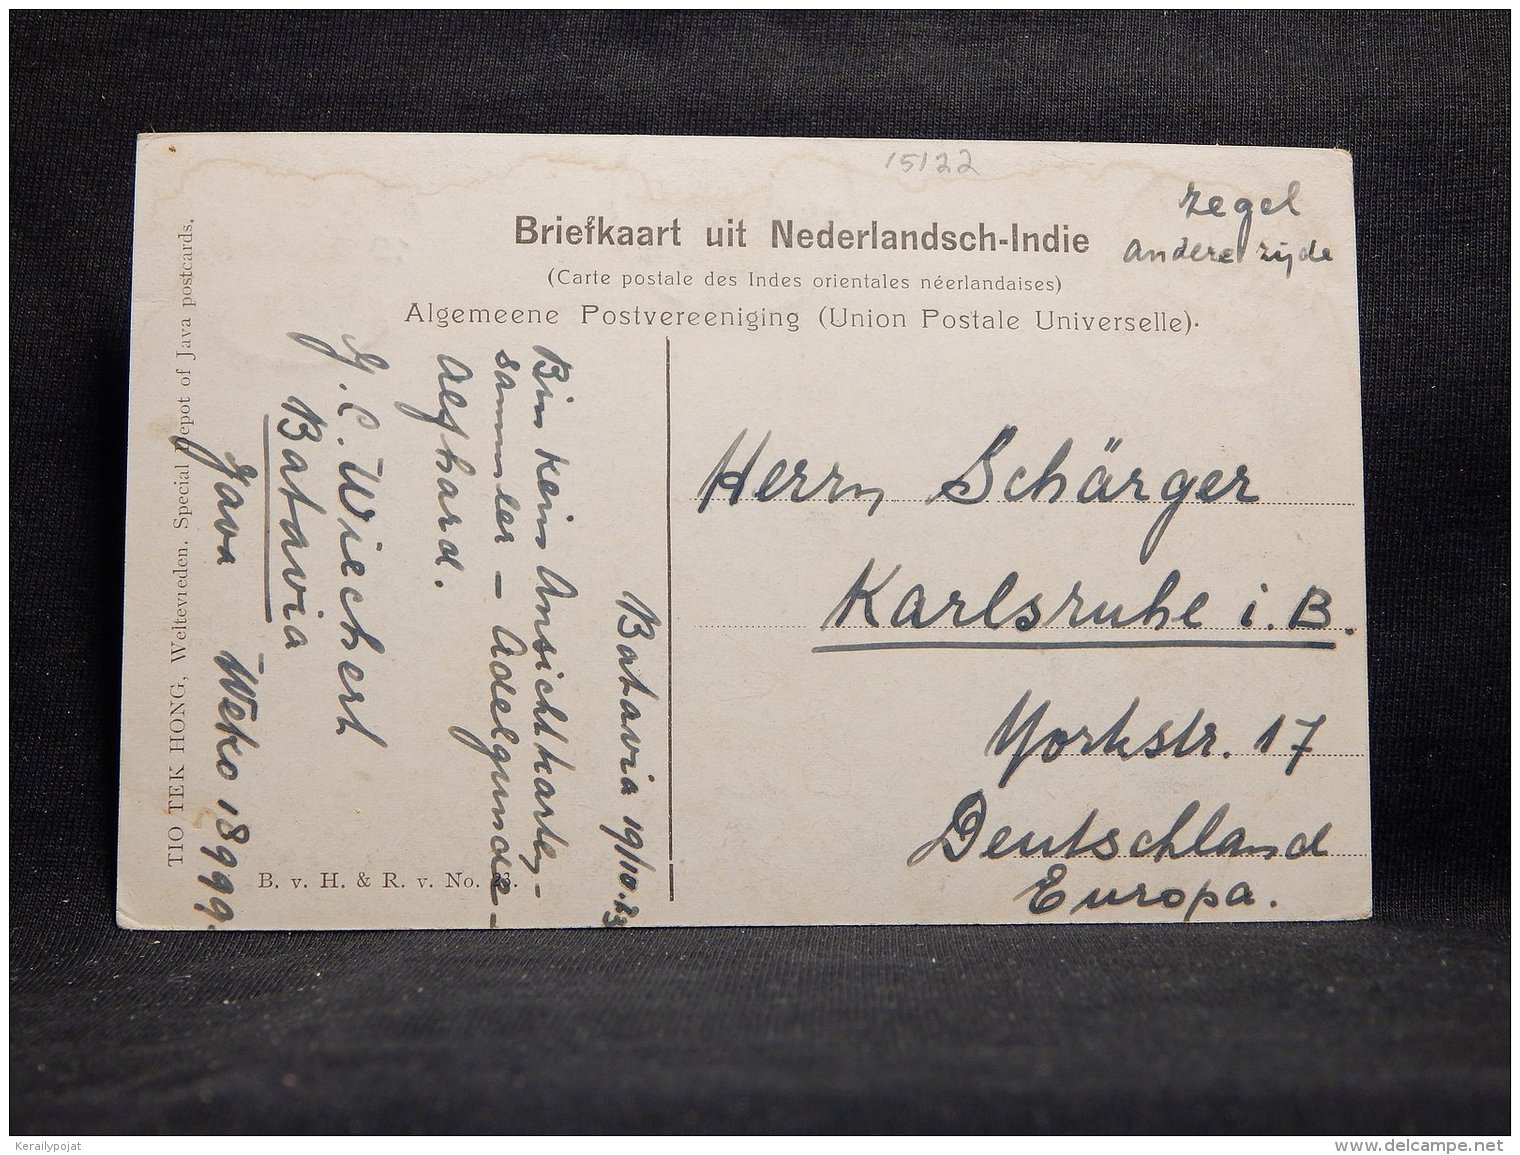 15122
zegel
andere zijde
Briefkaart uit Nederlandsch-Indie
(Carte postale des Indes orientales néerlandaises)
Algemeene Postvereeniging (Union Postale Universelle).
Herrn Schärger
Karlsruhe i. B.
Yorkstr. 17
Deutschland
Europa.
Batavia 19/10.23
Bin kein Ansichtkarten-
sammler -
G. C. Wiechert
Batavia
Java Weko 18999.
TIO TEK HONG, Weltevreden. Special Depot of Java postcards.
B. v. H. & R. v. No. 23.
Kerailypojat
www.delcampe.net